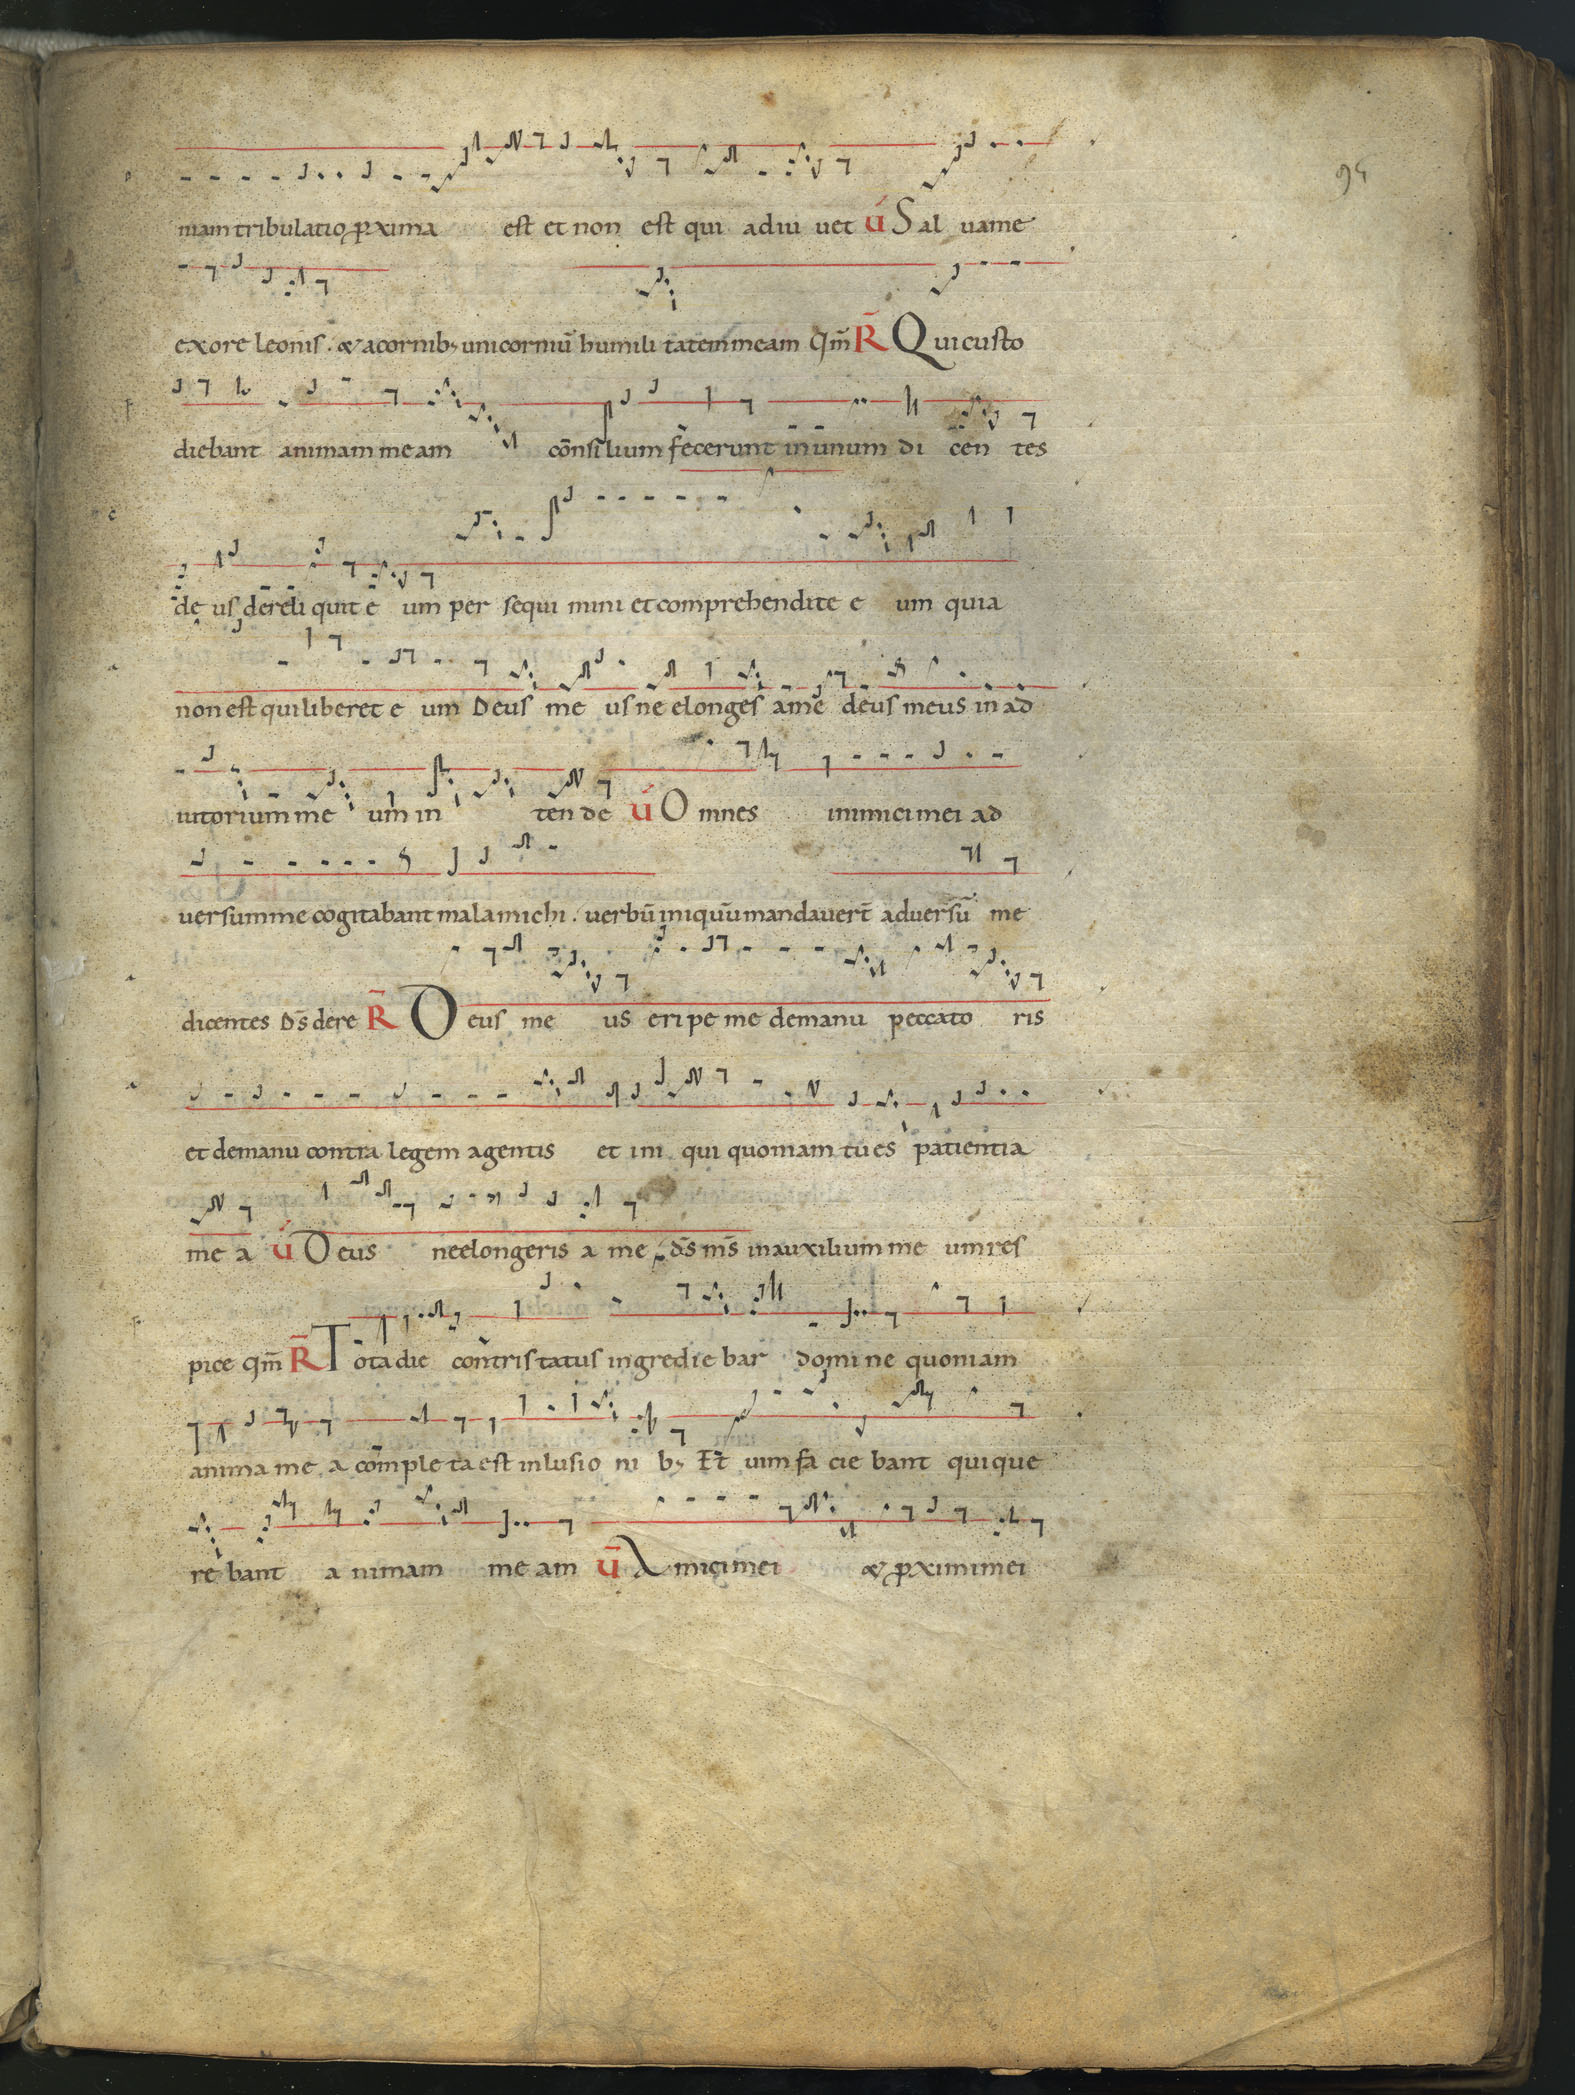 94
niam tribulatio ꝓxima est et non est qui adiu uet V́ Sal uame
exore leonis . & acornib; unicorniū humili tatem meam Qm̄ R̄ Qui custo
diebant animam meam consilium fecerunt in unum di cen tes
de us dereli quit e um per sequi mini et comprehendite e um quia
non est qui liberet e um Deus me us ne elonges a me deus meus in ad
iutorium me um in ten de V́ Omnes inimici mei ad
uersum me cogitabant mala michi . uerbū iniquū mandauer̄t aduersū me
dicentes Ds̄ dere R̄ Deus me us eripe me demanu peccato ris
et demanu contra legem agentis et ini qui quoniam tu es patientia
me a V́ Deus ne elongeris a me ds̄ ms̄ in auxilium me um res
pice qm̄ R̄ Tota die contris tatus ingredie bar domi ne quoniam
anima me a comple ta est inlusio ni b; Et uim fa cie bant qui que
re bant a nimam me am V̄ Amici mei & ꝓximi mei